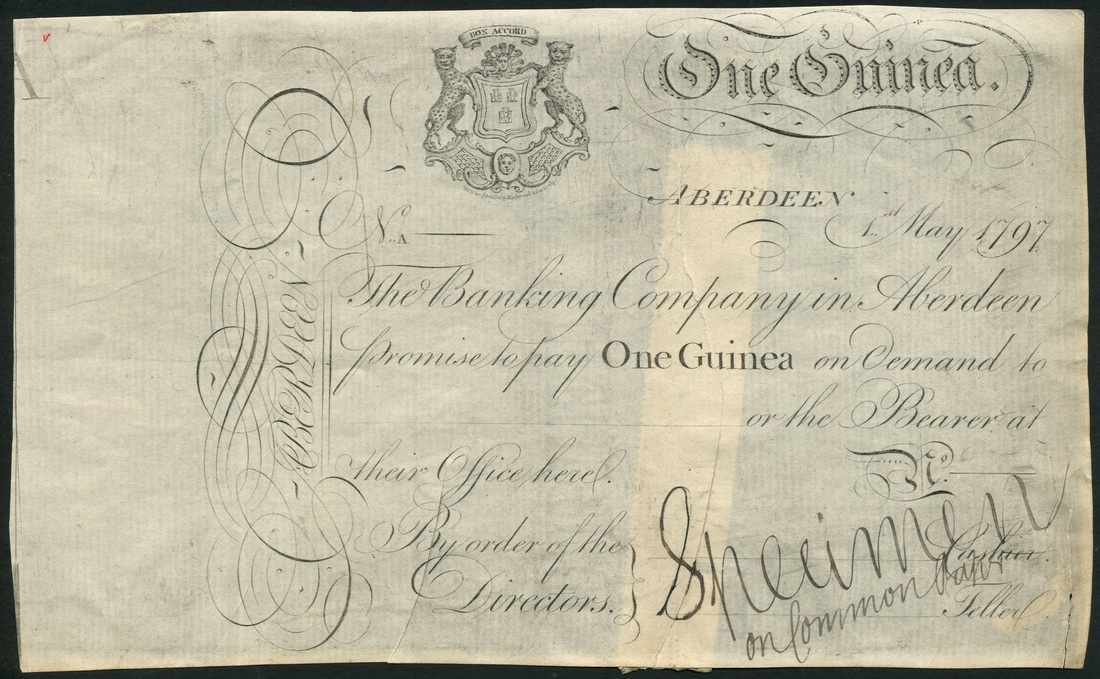 BON ACCORD
One Guinea.
ABERDEEN
1st May 1797
No. A
The Banking Company in Aberdeen
promise to pay One Guinea on Demand to
or the Bearer at
their Office here.
No.
By order of the
Directors.
Cashier.
Teller.
Specimen
on Common Paper
ABERDEEN
A